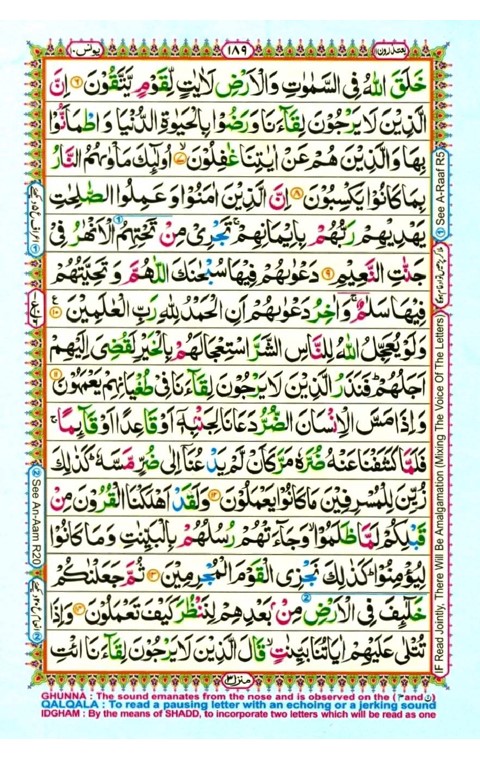 یونس ۱۰
۱۸۹
یعتذرون ۱۱
خَلَقَ اللّٰهُ فِی السَّمٰوٰتِ وَالْاَرْضِ لَاٰیٰتٍ لِّقَوْمٍ یَّتَّقُوْنَ ۶ اِنَّ
الَّذِیْنَ لَا یَرْجُوْنَ لِقَآءَنَا وَرَضُوْا بِالْحَیٰوةِ الدُّنْیَا وَاطْمَاَنُّوْا
بِهَا وَالَّذِیْنَ هُمْ عَنْ اٰیٰتِنَا غٰفِلُوْنَ ۷ اُولٰٓئِكَ مَاْوٰىهُمُ النَّارُ
بِمَا كَانُوْا یَكْسِبُوْنَ ۸ اِنَّ الَّذِیْنَ اٰمَنُوْا وَعَمِلُوا الصّٰلِحٰتِ
یَهْدِیْهِمْ رَبُّهُمْ بِاِیْمَانِهِمْ ۚ تَجْرِیْ مِنْ تَحْتِهِمُ الْاَنْهٰرُ فِیْ
جَنّٰتِ النَّعِیْمِ ۹ دَعْوٰىهُمْ فِیْهَا سُبْحٰنَكَ اللّٰهُمَّ وَتَحِیَّتُهُمْ
فِیْهَا سَلٰمٌ ۚ وَاٰخِرُ دَعْوٰىهُمْ اَنِ الْحَمْدُ لِلّٰهِ رَبِّ الْعٰلَمِیْنَ ۱۰
وَلَوْ یُعَجِّلُ اللّٰهُ لِلنَّاسِ الشَّرَّ اسْتِعْجَالَهُمْ بِالْخَیْرِ لَقُضِیَ اِلَیْهِمْ
اَجَلُهُمْ ؕ فَنَذَرُ الَّذِیْنَ لَا یَرْجُوْنَ لِقَآءَنَا فِیْ طُغْیَانِهِمْ یَعْمَهُوْنَ ۱۱
وَاِذَا مَسَّ الْاِنْسَانَ الضُّرُّ دَعَانَا لِجَنْۢبِهٖۤ اَوْ قَاعِدًا اَوْ قَآئِمًا ۚ
فَلَمَّا كَشَفْنَا عَنْهُ ضُرَّهٗ مَرَّ كَاَنْ لَّمْ یَدْعُنَاۤ اِلٰی ضُرٍّ مَّسَّهٗ ؕ كَذٰلِكَ
زُیِّنَ لِلْمُسْرِفِیْنَ مَا كَانُوْا یَعْمَلُوْنَ ۱۲ وَلَقَدْ اَهْلَكْنَا الْقُرُوْنَ مِنْ
قَبْلِكُمْ لَمَّا ظَلَمُوْا ۙ وَجَآءَتْهُمْ رُسُلُهُمْ بِالْبَیِّنٰتِ وَمَا كَانُوْا
لِیُؤْمِنُوْا ؕ كَذٰلِكَ نَجْزِی الْقَوْمَ الْمُجْرِمِیْنَ ۱۳ ثُمَّ جَعَلْنٰكُمْ
خَلٰٓئِفَ فِی الْاَرْضِ مِنْۢ بَعْدِهِمْ لِنَنْظُرَ كَیْفَ تَعْمَلُوْنَ ۱۴ وَاِذَا
تُتْلٰی عَلَیْهِمْ اٰیَاتُنَا بَیِّنٰتٍ ۙ قَالَ الَّذِیْنَ لَا یَرْجُوْنَ لِقَآءَنَا ائْتِ
① See A-Raaf R5
IF Read Jointly, There Will Be Amalgamation (Mixing The Voice Of The Letters)
② See An-Aam R20
منزل ۳
GHUNNA : The sound emanates from the nose and is observed on the (ن and م)
QALQALA : To read a pausing letter with an echoing or a jerking sound
IDGHAM : By the means of SHADD, to incorporate two letters which will be read as one